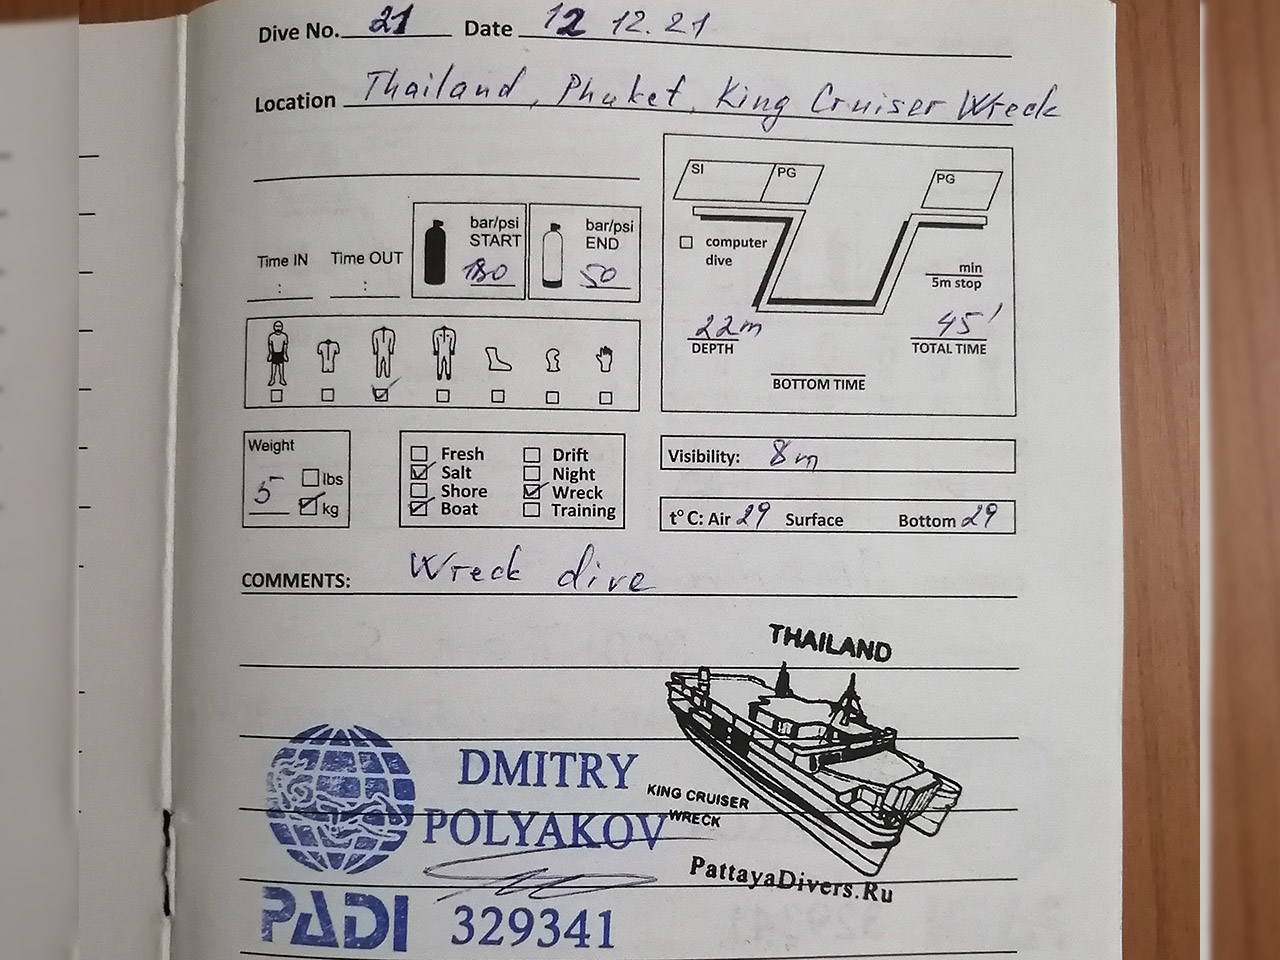 Dive No. 21 Date 12 12.21
Location Thailand, Phuket, King Cruiser Wreck
SI PG PG
bar/psi START 180
bar/psi END 50
Time IN : Time OUT :
computer dive
min
5m stop
22m DEPTH
45' TOTAL TIME
BOTTOM TIME
Weight
5 lbs
kg
Fresh Drift
Salt Night
Shore Wreck
Boat Training
Visibility: 8m
t° C: Air 29 Surface Bottom 29
COMMENTS: Wreck dive
THAILAND
KING CRUISER
WRECK
PattayaDivers.Ru
DMITRY
POLYAKOV
PADI 329341